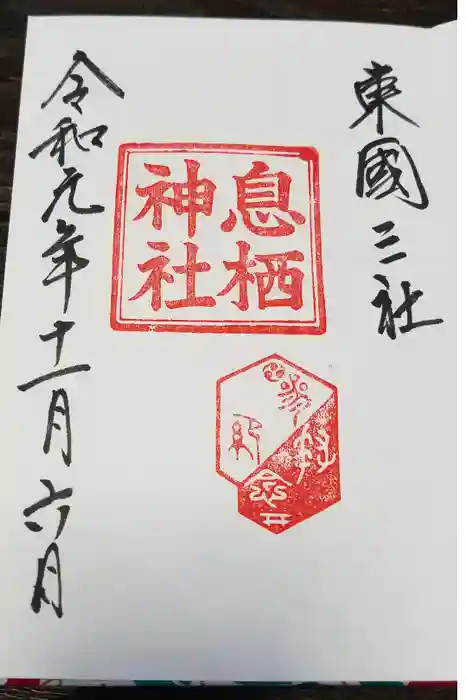 東國三社
息栖
神社
令和元年十一月六月